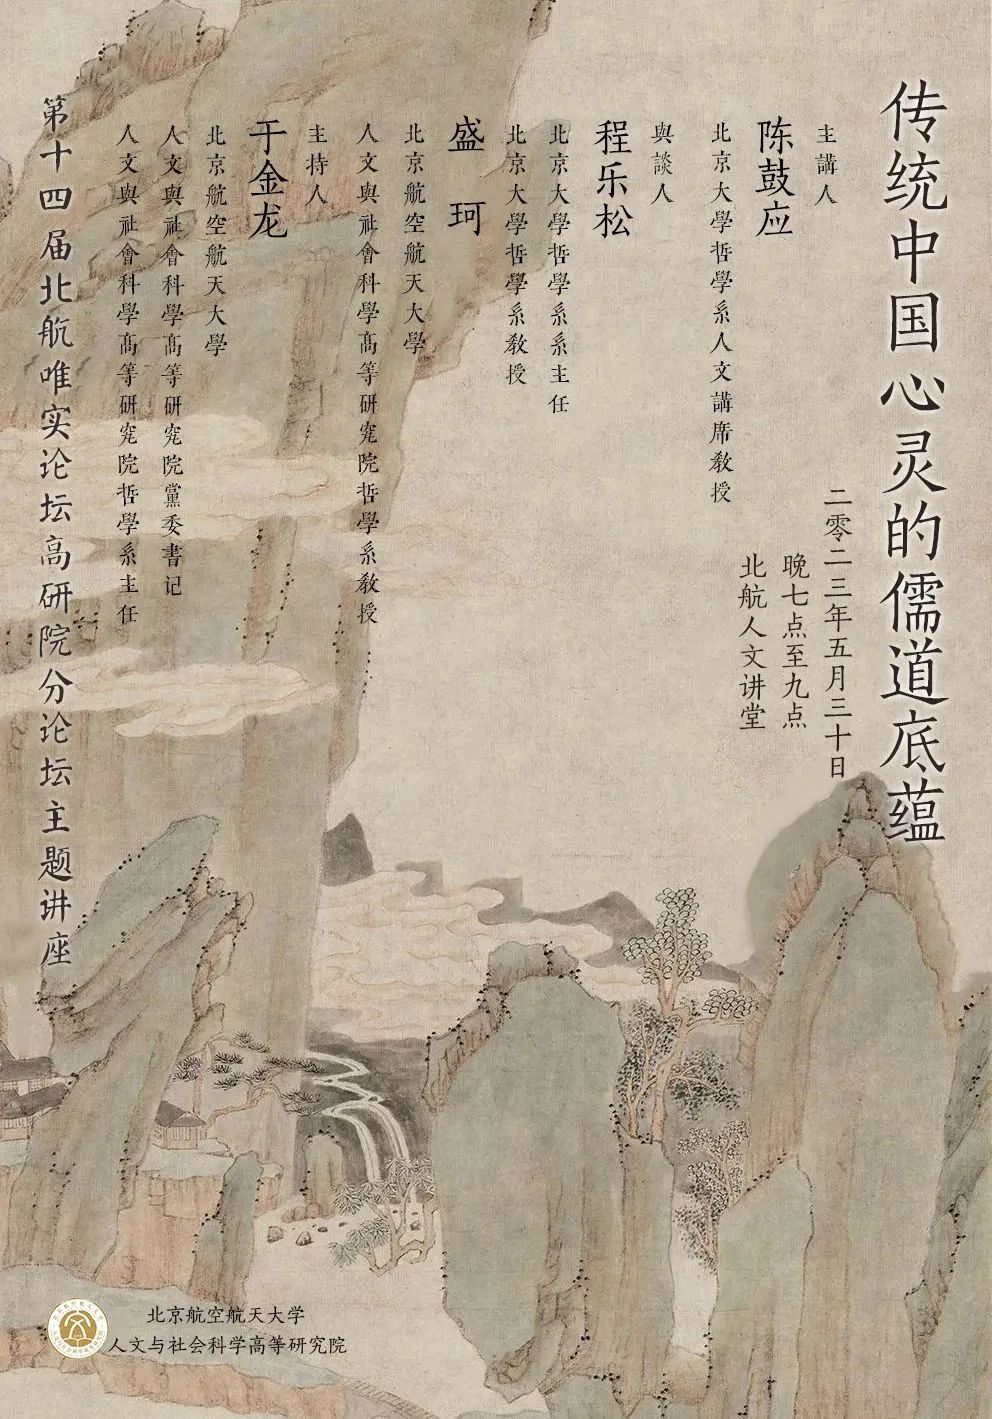 传统中国心灵的儒道底蕴
二零二三年五月三十日
晚七点至九点
北航人文讲堂
主講人
陈鼓应
北京大學哲學系人文講席教授
與談人
程乐松
北京大學哲學系系主任
北京大學哲學系教授
盛 珂
北京航空航天大學
人文與社會科學高等研究院哲學系教授
主持人
于金龙
北京航空航天大學
人文與社會科學高等研究院黨委書记
人文與社會科學高等研究院哲學系主任
第十四届北航唯实论坛高研院分论坛主题讲座
北京航空航天大学
人文与社会科学高等研究院